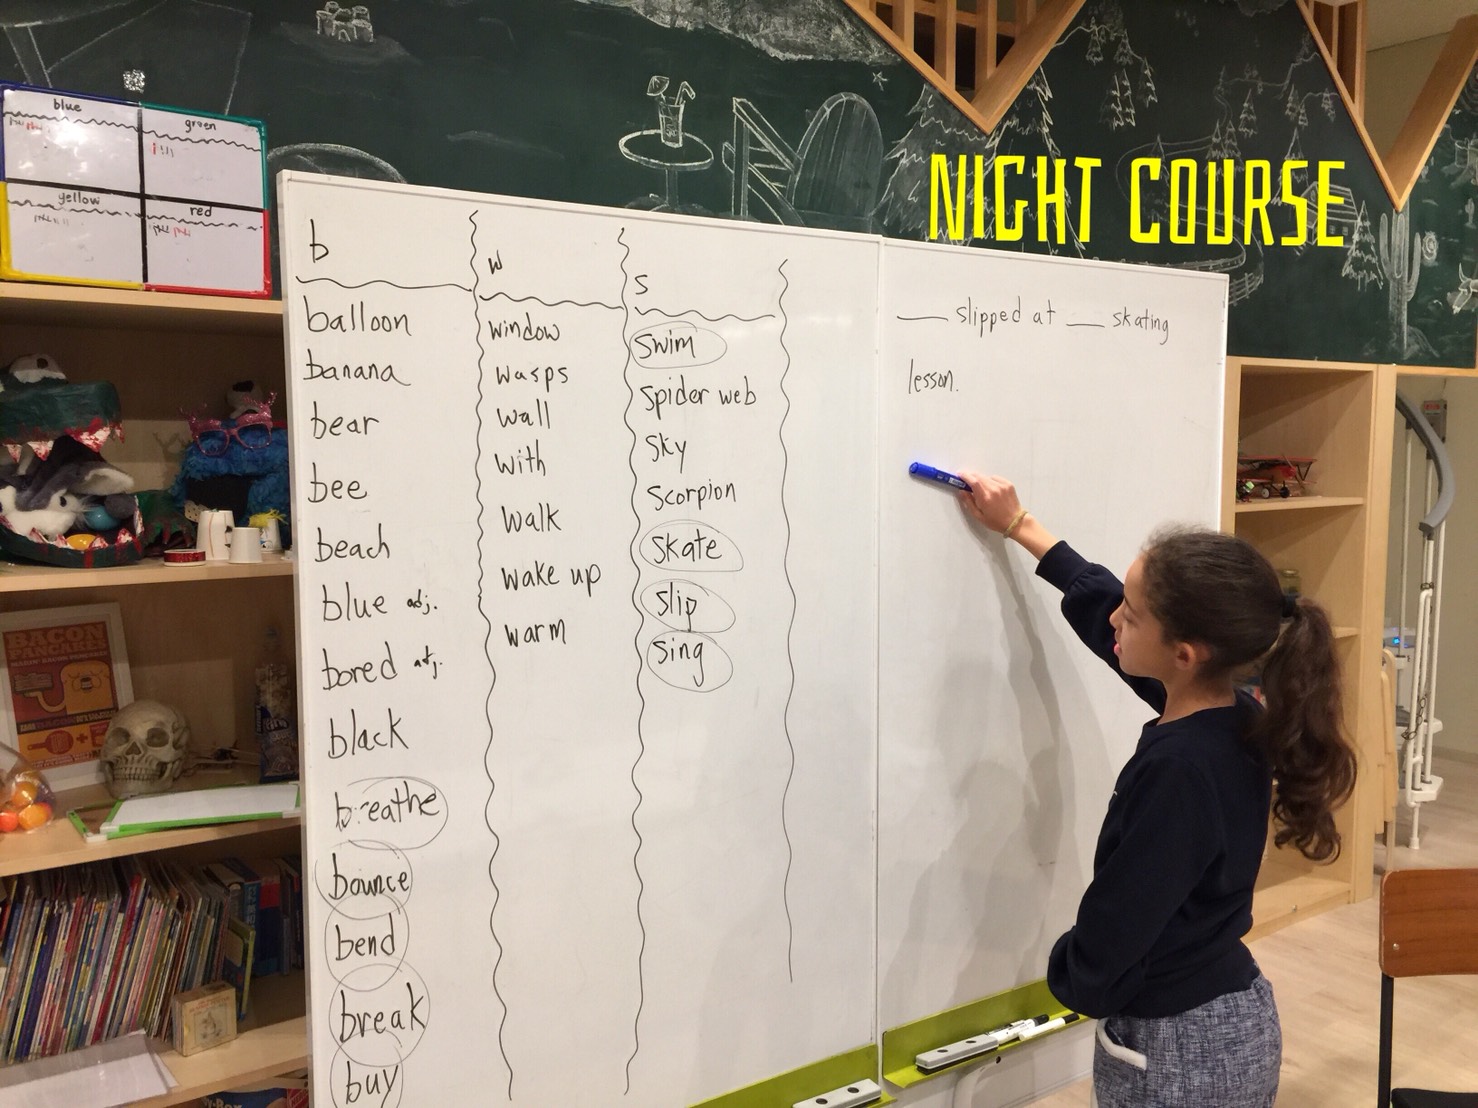 NIGHT COURSE
blue
green
yellow
red
b
balloon
banana
bear
bee
beach
blue adj.
bored adj.
black
breathe
bounce
bend
break
buy
w
window
wasps
wall
with
walk
wake up
warm
s
swim
spider web
sky
scorpion
skate
slip
sing
___ slipped at ___ skating
lesson.
BACON
PANCAKES